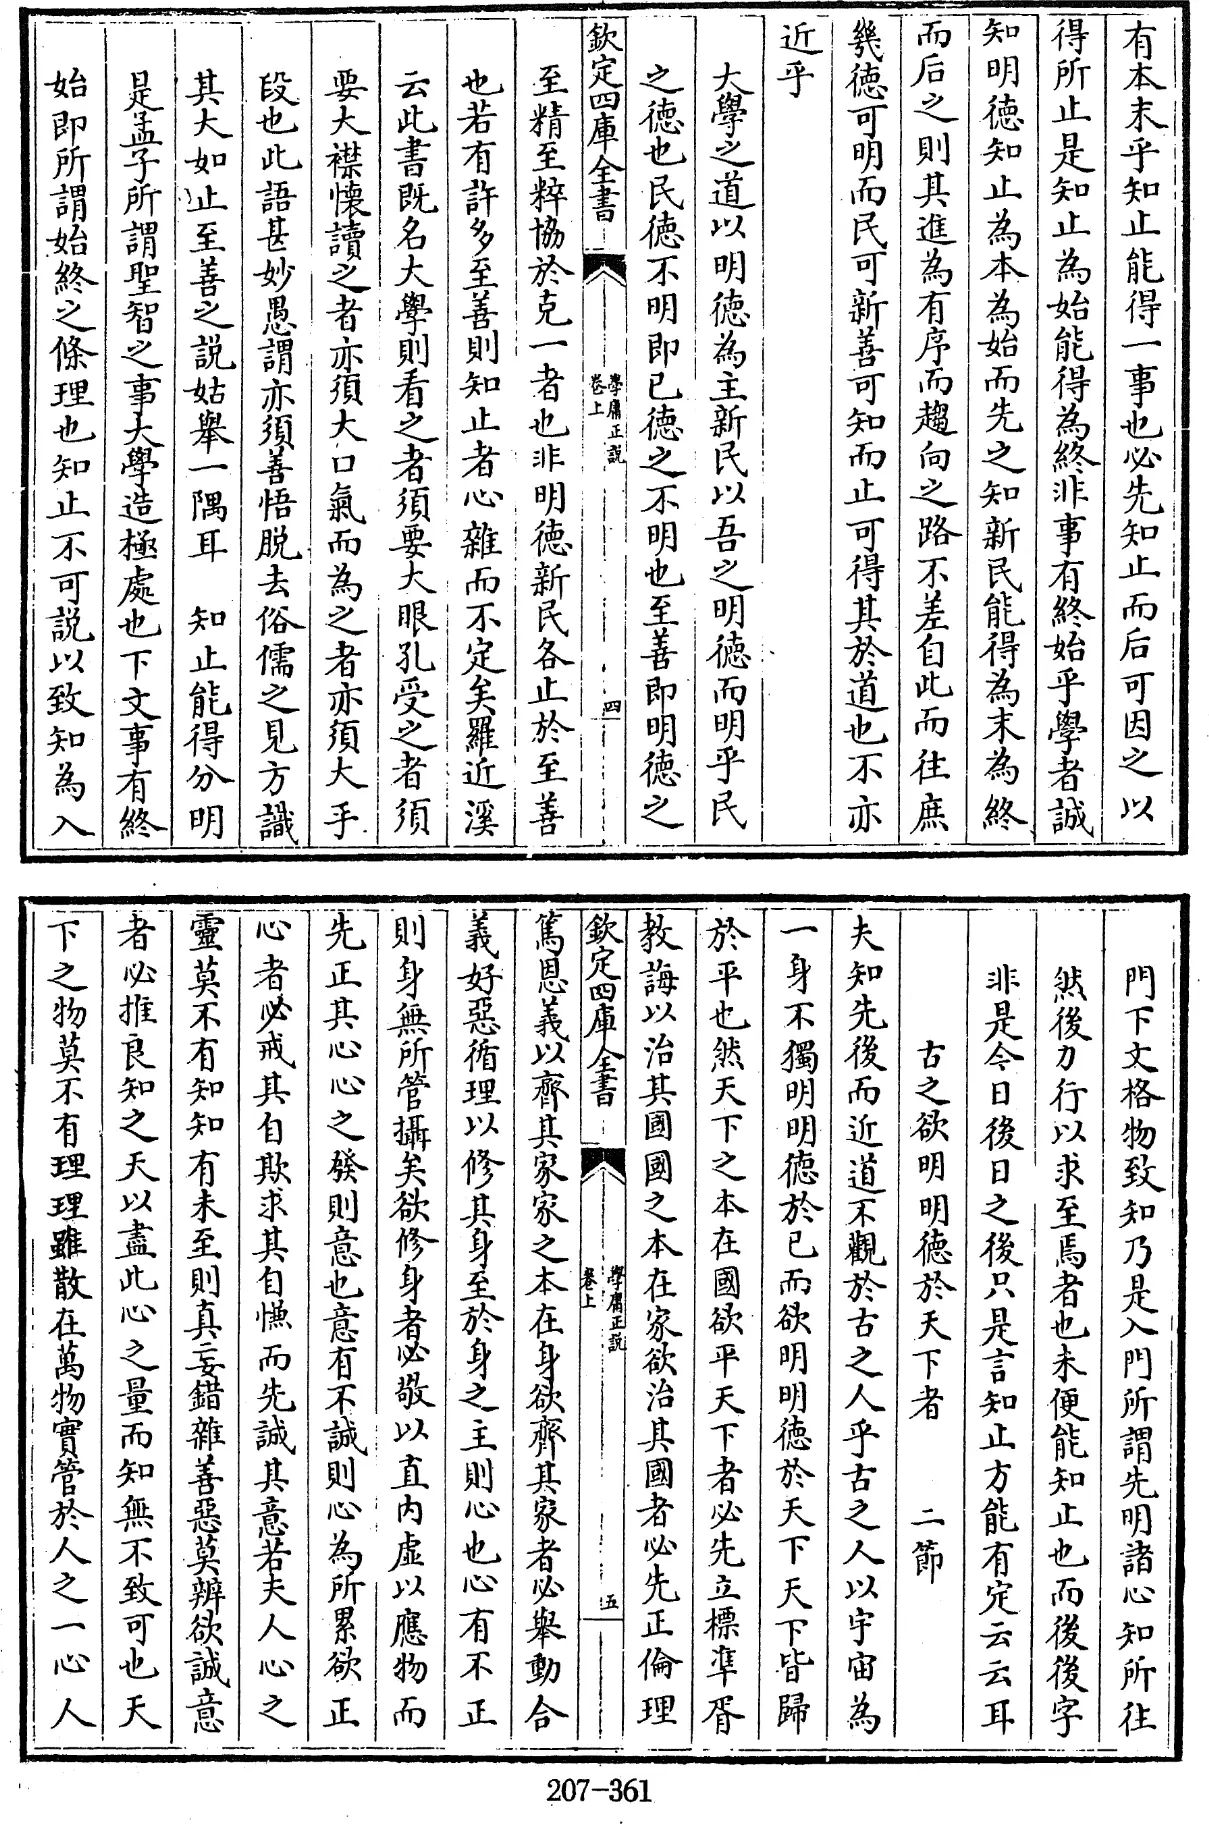 有本末乎知止能得一事也必先知止而后可因之以
得所止是知止為始能得為終非事有終始乎學者誠
知明德知止為本為始而先之知新民能得為末為終
而后之則其進為有序而趨向之路不差自此而往庶
幾德可明而民可新善可知而止可得其於道也不亦
近乎
大學之道以明德為主新民以吾之明德而明乎民
之德也民德不明即已德之不明也至善即明德之
欽定四庫全書
學庸正說
卷上
四
至精至粹協於克一者也非明德新民各止於至善
也若有許多至善則知止者心雜而不定矣羅近溪
云此書既名大學則看之者須要大眼孔受之者須
要大襟懷讀之者亦須大口氣而為之者亦須大手
段也此語甚妙愚謂亦須善悟脫去俗儒之見方識
其大如止至善之說姑舉一隅耳　知止能得分明
是孟子所謂聖智之事大學造極處也下文事有終
始即所謂始終之條理也知止不可說以致知為入
門下文格物致知乃是入門所謂先明諸心知所往
然後力行以求至焉者也未便能知止也而後後字
非是今日後日之後只是言知止方能有定云云耳
古之欲明明德於天下者　二節
夫知先後而近道不觀於古之人乎古之人以宇宙為
一身不獨明明德於已而欲明明德於天下天下皆歸
於平也然天下之本在國欲平天下者必先立標準胥
教誨以治其國國之本在家欲治其國者必先正倫理
欽定四庫全書
學庸正說
卷上
五
篤恩義以齊其家家之本在身欲齊其家者必舉動合
義好惡循理以修其身至於身之主則心也心有不正
則身無所管攝矣欲修身者必敬以直內虛以應物而
先正其心心之發則意也意有不誠則心為所累欲正
心者必戒其自欺求其自慊而先誠其意若夫人心之
靈莫不有知知有未至則真妄錯雜善惡莫辨欲誠意
者必推良知之天以盡此心之量而知無不致可也天
下之物莫不有理理雖散在萬物實管於人之一心人
207-361